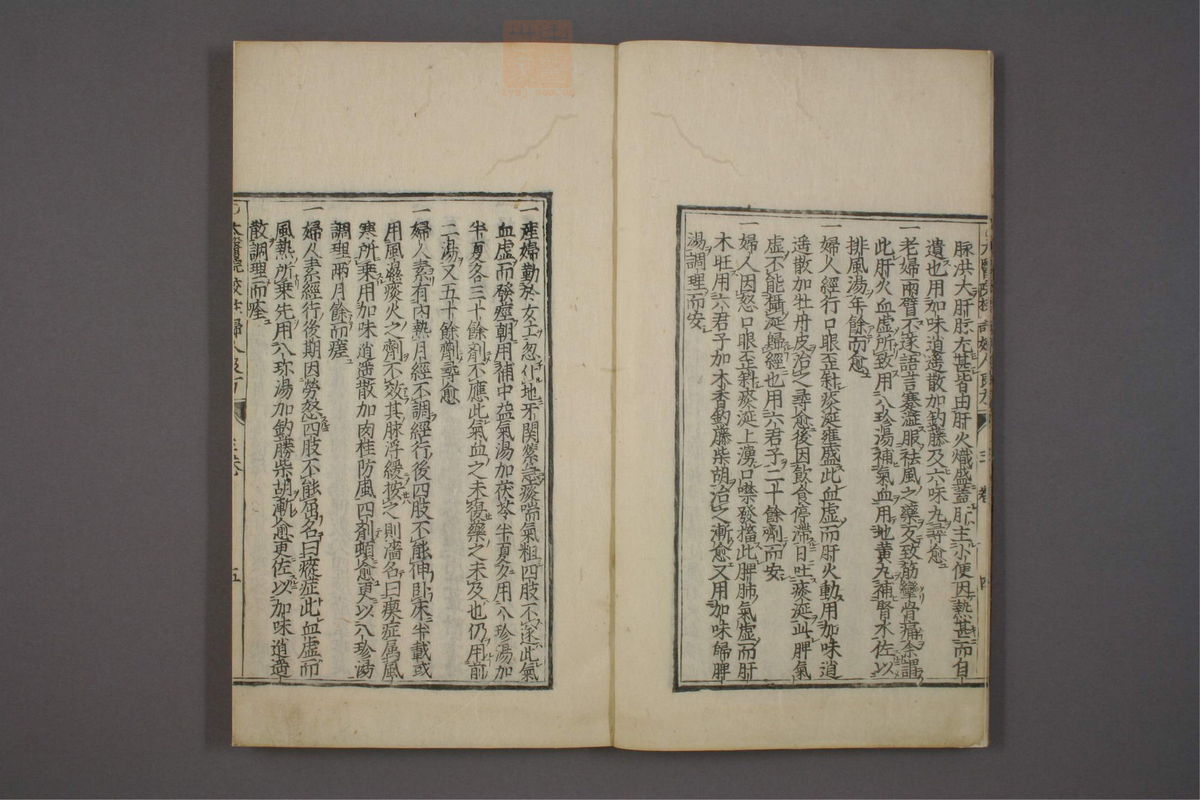 脉洪大肝脉左甚皆由肝火熾盛蓋肝主小便因熱甚而自
遺也用加味逍遥散加鈎藤及六味丸尋愈
一老婦兩臂不遂語言蹇澁服祛風之藥反致筋攣骨痛余謂
此肝火血虚所致用八珍湯補氣血用地黄丸補腎水佐以
排風湯年餘而愈
一婦人經行口眼歪斜痰涎壅盛此血虚而肝火動用加味逍
遥散加牡丹皮治之尋愈後因飲食停滯日吐痰涎此脾氣
虚不能攝涎歸經也用六君子二十餘劑而安
一婦人因怒口眼歪斜痰涎上湧口噤發搐此脾肺氣虚而肝
木旺用六君子加木香鈎藤柴胡治之漸愈又用加味歸脾
湯調理而安
三卷
四
一産婦勤於女工忽仆地牙関緊急痰喘氣粗四肢不遂此氣
血虚而發痙朝用補中益氣湯加茯苓半夏夕用八珍湯加
半夏各三十餘剤不應此氣血之未復藥之未及也仍用前
二湯又五十餘劑尋愈
一婦人素有内熱月經不調經行後四肢不能伸卧床半載或
用風濕痰火之劑不效其脉浮緩按之則濇名曰痿症属風
寒所乗用加味逍遥散加肉桂防風四剤頓愈更以八珍湯
調理兩月餘而瘥
一婦人素經行後期因勞怒四肢不能屈名曰痙症此血虚而
風熱所乗先用八珍湯加鈎藤柴胡漸愈更佐以加味逍遥
散調理而痊
太醫院校註婦人良方
三卷
五